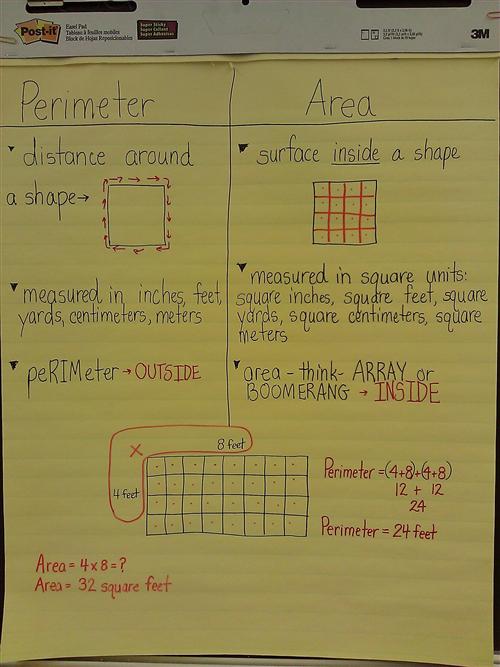 Post-it
Easel Pad
Tableau à feuilles mobiles
Block de Hojas Reposicionables
Super Sticky
Super Collant
Super Adhesivas
3M
Perimeter
distance around
a shape→
measured in inches, feet,
yards, centimeters, meters
peRIMeter → OUTSIDE
Area
surface inside a shape
measured in square units:
square inches, square feet, square
yards, square centimeters, square
meters
area - think - ARRAY or
BOOMERANG → INSIDE
8 feet
x
4 feet
Perimeter = (4+8)+(4+8)
12 + 12
24
Perimeter = 24 feet
Area = 4 x 8 = ?
Area = 32 square feet